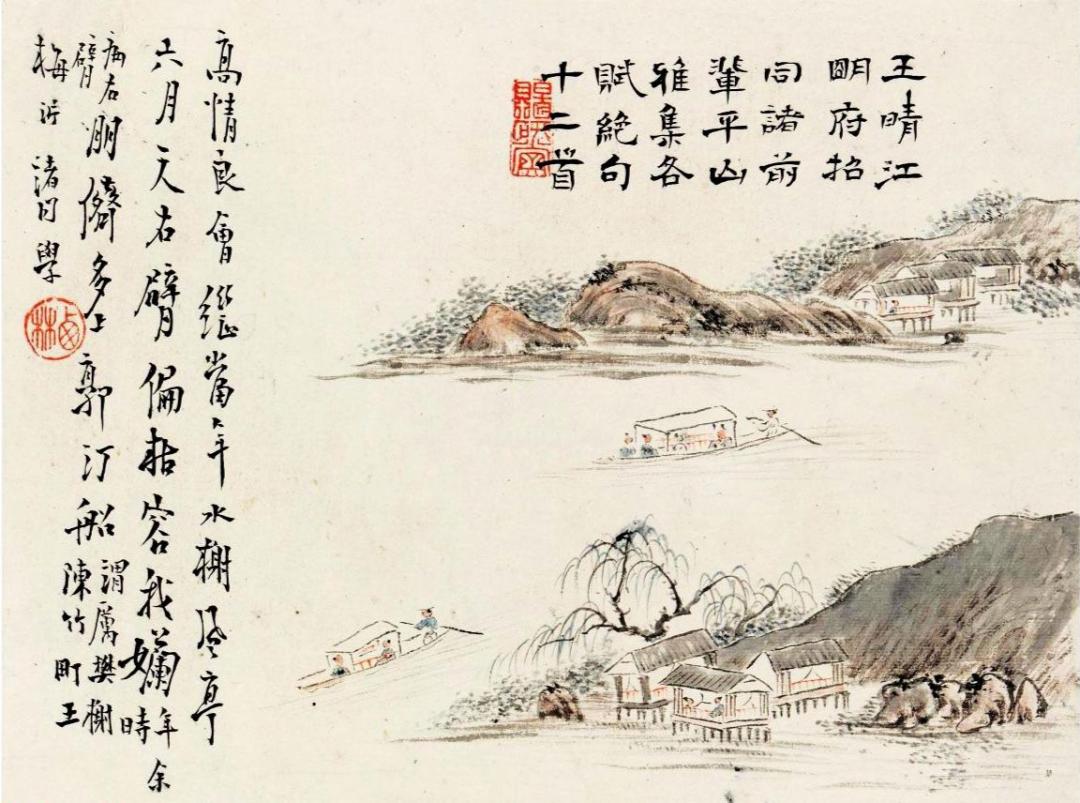 王晴江
明府招
同諸前
輩平山
雅集各
賦絶句
十二首
高情良會繼當年水榭風亭
六月天右臂偏枯容我嬾年余時
病右臂朋儕多上郭汀船謂厲樊榭陳竹町王
梅沜諸同學